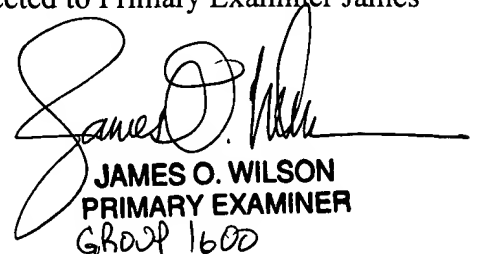 ected to Primary Examiner James
James O. Wilson
JAMES O. WILSON
PRIMARY EXAMINER
GROUP 1600